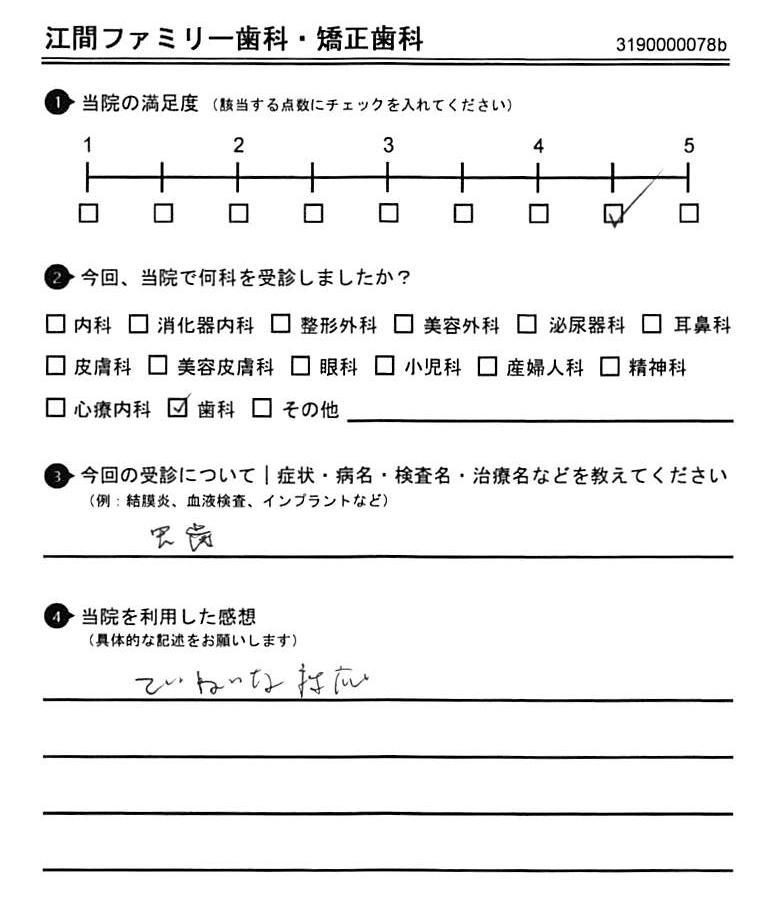 江間ファミリー歯科・矯正歯科 3190000078b
1 当院の満足度 (該当する点数にチェックを入れてください)
1 2 3 4 5
2 今回、当院で何科を受診しましたか？
□ 内科 □ 消化器内科 □ 整形外科 □ 美容外科 □ 泌尿器科 □ 耳鼻科
□ 皮膚科 □ 美容皮膚科 □ 眼科 □ 小児科 □ 産婦人科 □ 精神科
□ 心療内科 ☑ 歯科 □ その他
3 今回の受診について｜症状・病名・検査名・治療名などを教えてください
(例：結膜炎、血液検査、インプラントなど)
虫歯
4 当院を利用した感想
(具体的な記述をお願いします)
ていねいな対応